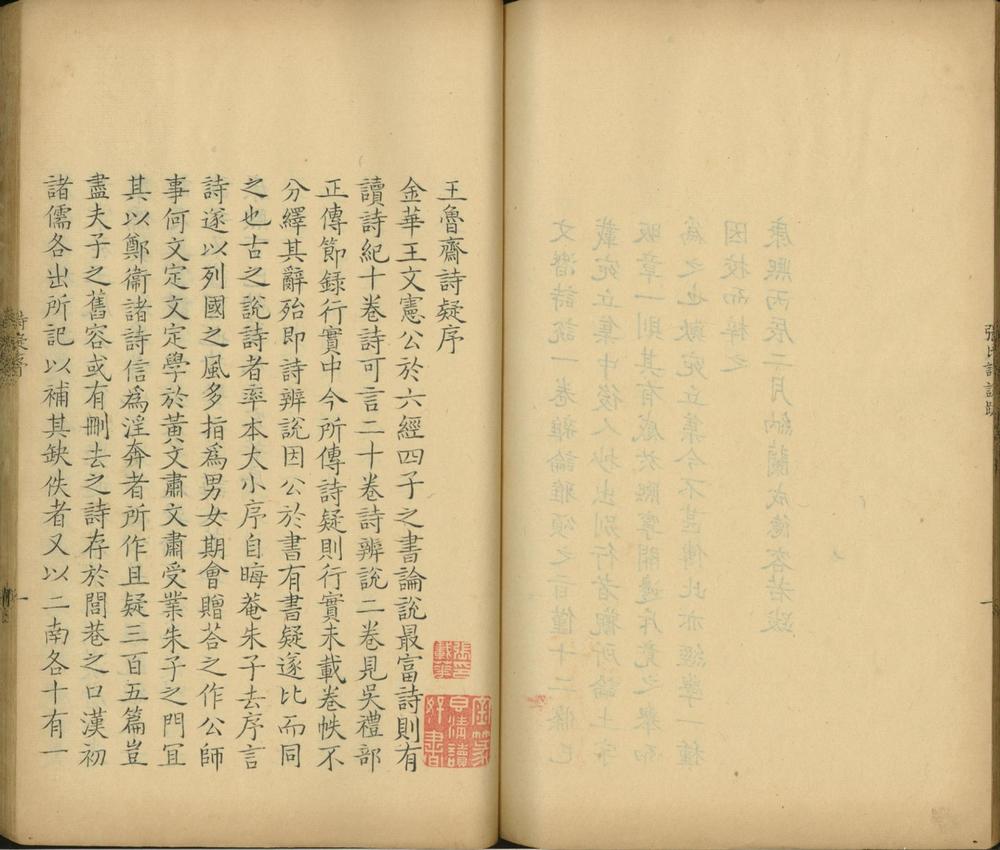 王魯齋詩疑序
金華王文憲公於六經四子之書論說最富詩則有
讀詩紀十卷詩可言二十卷詩辨說二卷見吳禮部
正傳節錄行實中今所傳詩疑則行實未載卷帙不
分繹其辭殆即詩辨說因公於書有書疑遂比而同
之也古之說詩者率本大小序自晦菴朱子去序言
詩遂以列國之風多指為男女期會贈荅之作公師
事何文定文定學於黃文肅文肅受業朱子之門冝
其以鄭衞諸詩信為淫奔者所作且疑三百五篇豈
盡夫子之舊容或有刪去之詩存於閭巷之口漢初
諸儒各出所記以補其缺佚者又以二南各十有一
詩疑序
一